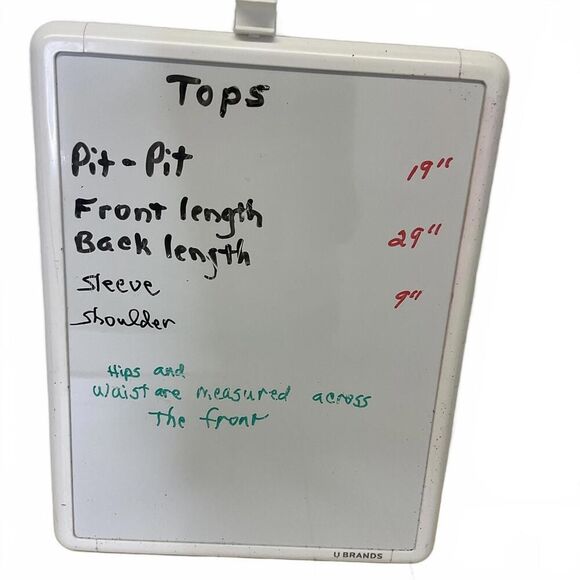 Tops
Pit-Pit 19"
Front length
Back length 29"
Sleeve 9"
Shoulder
Hips and
waist are measured across
The front
U BRANDS